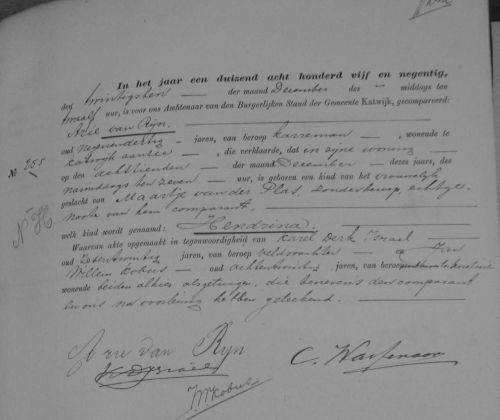 In het jaar een duizend acht honderd vijf en negentig,
den twintigsten der maand December des middags ten
twaalf uur, is voor ons Ambtenaar van den Burgerlijken Stand der Gemeente Katwijk, gecompareerd:
Arie van Rijn,
oud negenendertig jaren, van beroep karreman, wonende te
Katwijk aan zee, die verklaarde, dat in zijne woning
No 255
op den achttienden der maand December dezes jaars, des
namiddags ten zeven uur, is geboren een kind van het vrouwelijk
geslacht van Maartje van der Plas, zonder beroep, echtge-
noote van hem comparant.
N H
welk kind wordt genaamd: Hendrina.
Waarvan akte opgemaakt in tegenwoordigheid van Karel Derk Israel
oud zesentwintig jaren, van beroep veldwachter en Jan
Willem Kobus oud achtentwintig jaren, van beroep
wonende beiden alhier als getuigen, die benevens den comparant
en ons na voorlezing hebben geteekend.
Arie van Rijn
KDIsrael
C. Wassenaar
JWKobus